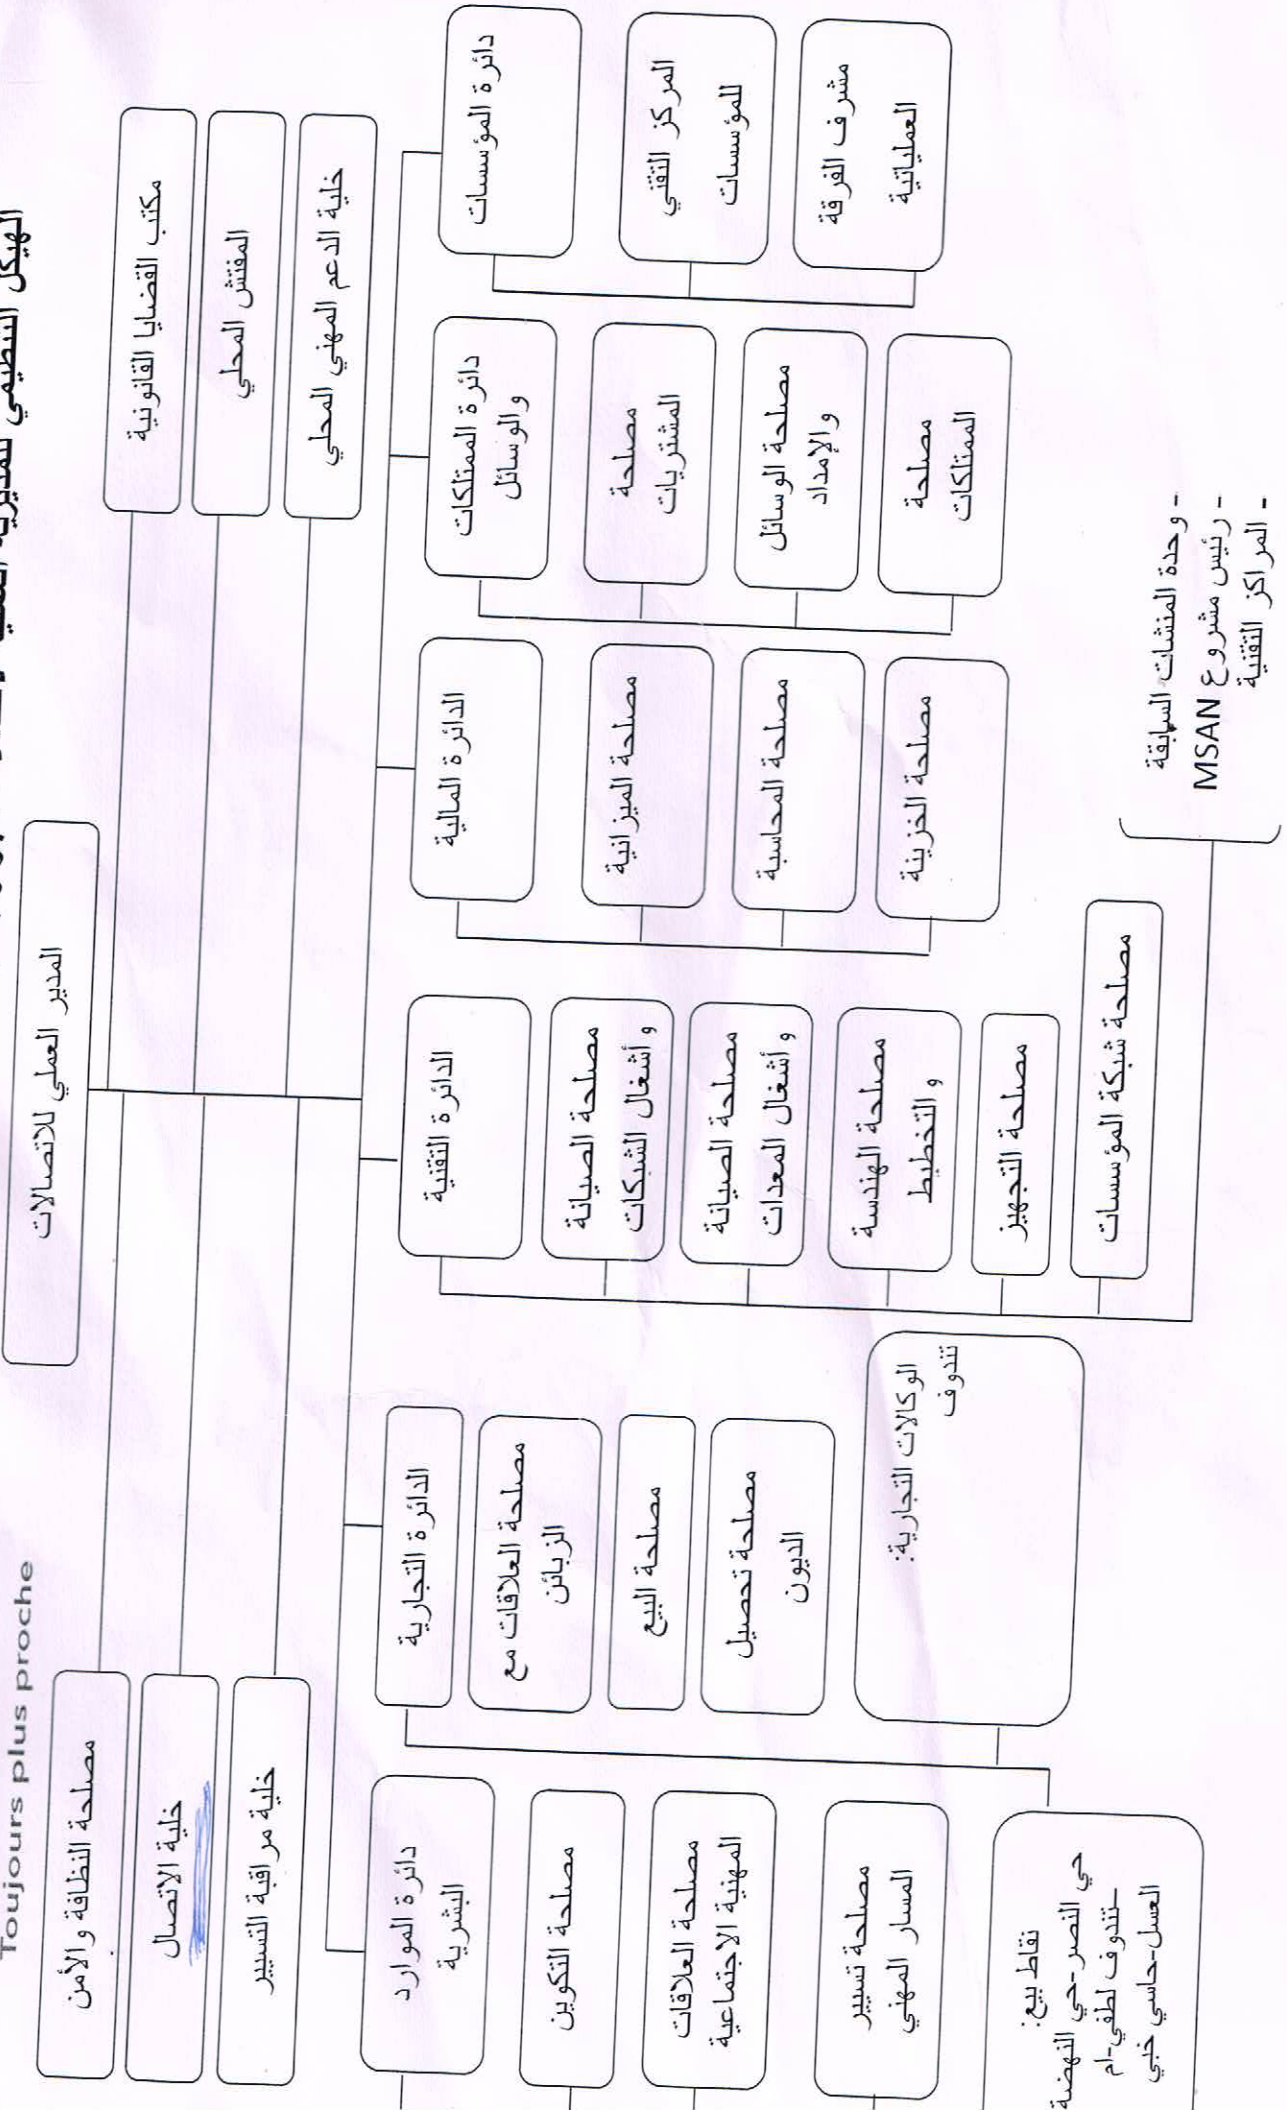 Toujours plus proche
الهيكل التنظيمي للمديرية
المدير العملي للاتصالات
مكتب القضايا القانونية
المفتش المحلي
خلية الدعم المهني المحلي
مصلحة النظافة والأمن
خلية الاتصال
خلية مراقبة التسيير
دائرة المؤسسات
المركز التقني
للمؤسسات
مشرف الفرقة
العملياتية
دائرة الممتلكات
والوسائل
مصلحة
المشتريات
مصلحة الوسائل
والإمداد
مصلحة
الممتلكات
الدائرة المالية
مصلحة الميزانية
مصلحة المحاسبة
مصلحة الخزينة
الدائرة التقنية
مصلحة الصيانة
و أشغال الشبكات
مصلحة الصيانة
و أشغال المعدات
مصلحة الهندسة
و التخطيط
مصلحة التجهيز
مصلحة شبكة المؤسسات
- وحدة المنشات السابقة
- رئيس مشروع MSAN
- المراكز التقنية
الدائرة التجارية
مصلحة العلاقات مع
الزبائن
مصلحة البيع
مصلحة تحصيل
الديون
الوكالات التجارية:
تندوف
دائرة الموارد
البشرية
مصلحة التكوين
مصلحة العلاقات
المهنية الاجتماعية
مصلحة تسيير
المسار المهني
نقاط بيع:
حي النصر-حي النهضة
-تندوف لطفي-ام
العسل-حاسي خبي